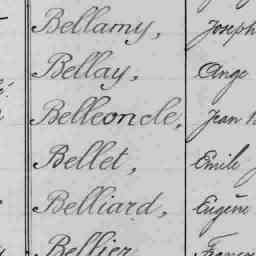 Bellamy, Joseph
Bellay, Ange
Belleoncle, Jean
Bellet, Emile
Belliard, Eugène
Bellier